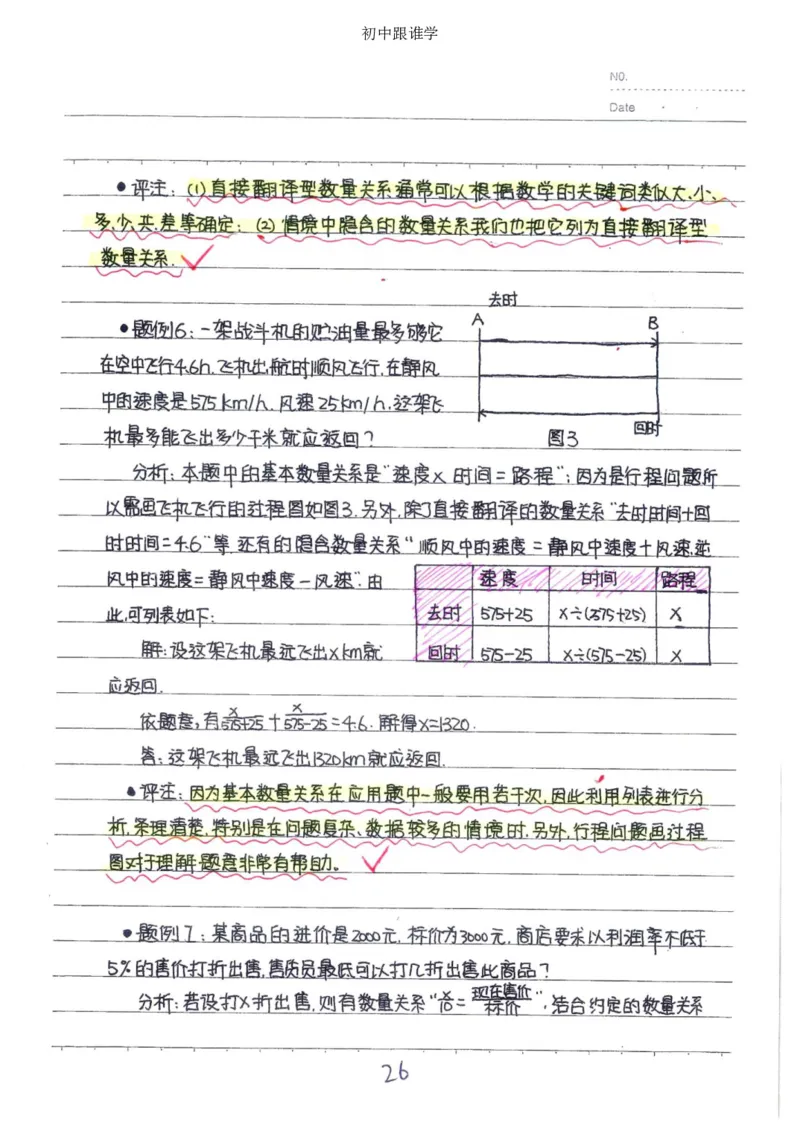 初中跟谁学
NO.
Date
●评注：(1)直接翻译型数量关系通常可以根据数学的关键词类似大、小、
多、少、共、差等确定；(2)情境中隐含的数量关系我们也把它列为直接翻译型
数量关系.
去时
A B
●题例6：一架战斗机的贮油量最多够它
在空中飞行4.6h，飞机出航时顺风飞行，在静风
中的速度是575km/h，风速25km/h，这架飞
机最多能飞出多少千米就应返回？
图3 回时
分析：本题中的基本数量关系是“速度×时间=路程”；因为是行程问题所
以需画飞机飞行的过程图如图3.另外，除了直接翻译的数量关系“去时时间+回
时时间=4.6”等，还有的隐含数量关系“顺风中的速度=静风中速度+风速，逆
风中的速度=静风中速度-风速”.由
此，可列表如下：
速度 时间 路程
去时 575+25 x÷(575+25) x
回时 575-25 x÷(575-25) x
解：设这架飞机最远飞出xkm就
应返回.
依题意，有x/575+25+x/575-25=4.6.解得x=1320.
答：这架飞机最远飞出1320km就应返回.
●评注：因为基本数量关系在应用题中一般要用若干次，因此利用列表进行分
析，条理清楚，特别是在问题复杂、数据较多的情境时.另外，行程问题画过程
图对于理解题意非常有帮助。
●题例7：某商品的进价是2000元，标价为3000元，商店要求以利润率不低于
5%的售价打折出售，售货员最低可以打几折出售此商品？
分析：若设打x折出售，则有数量关系“x/10=现在售价/标价”，结合约定的数量关系
26